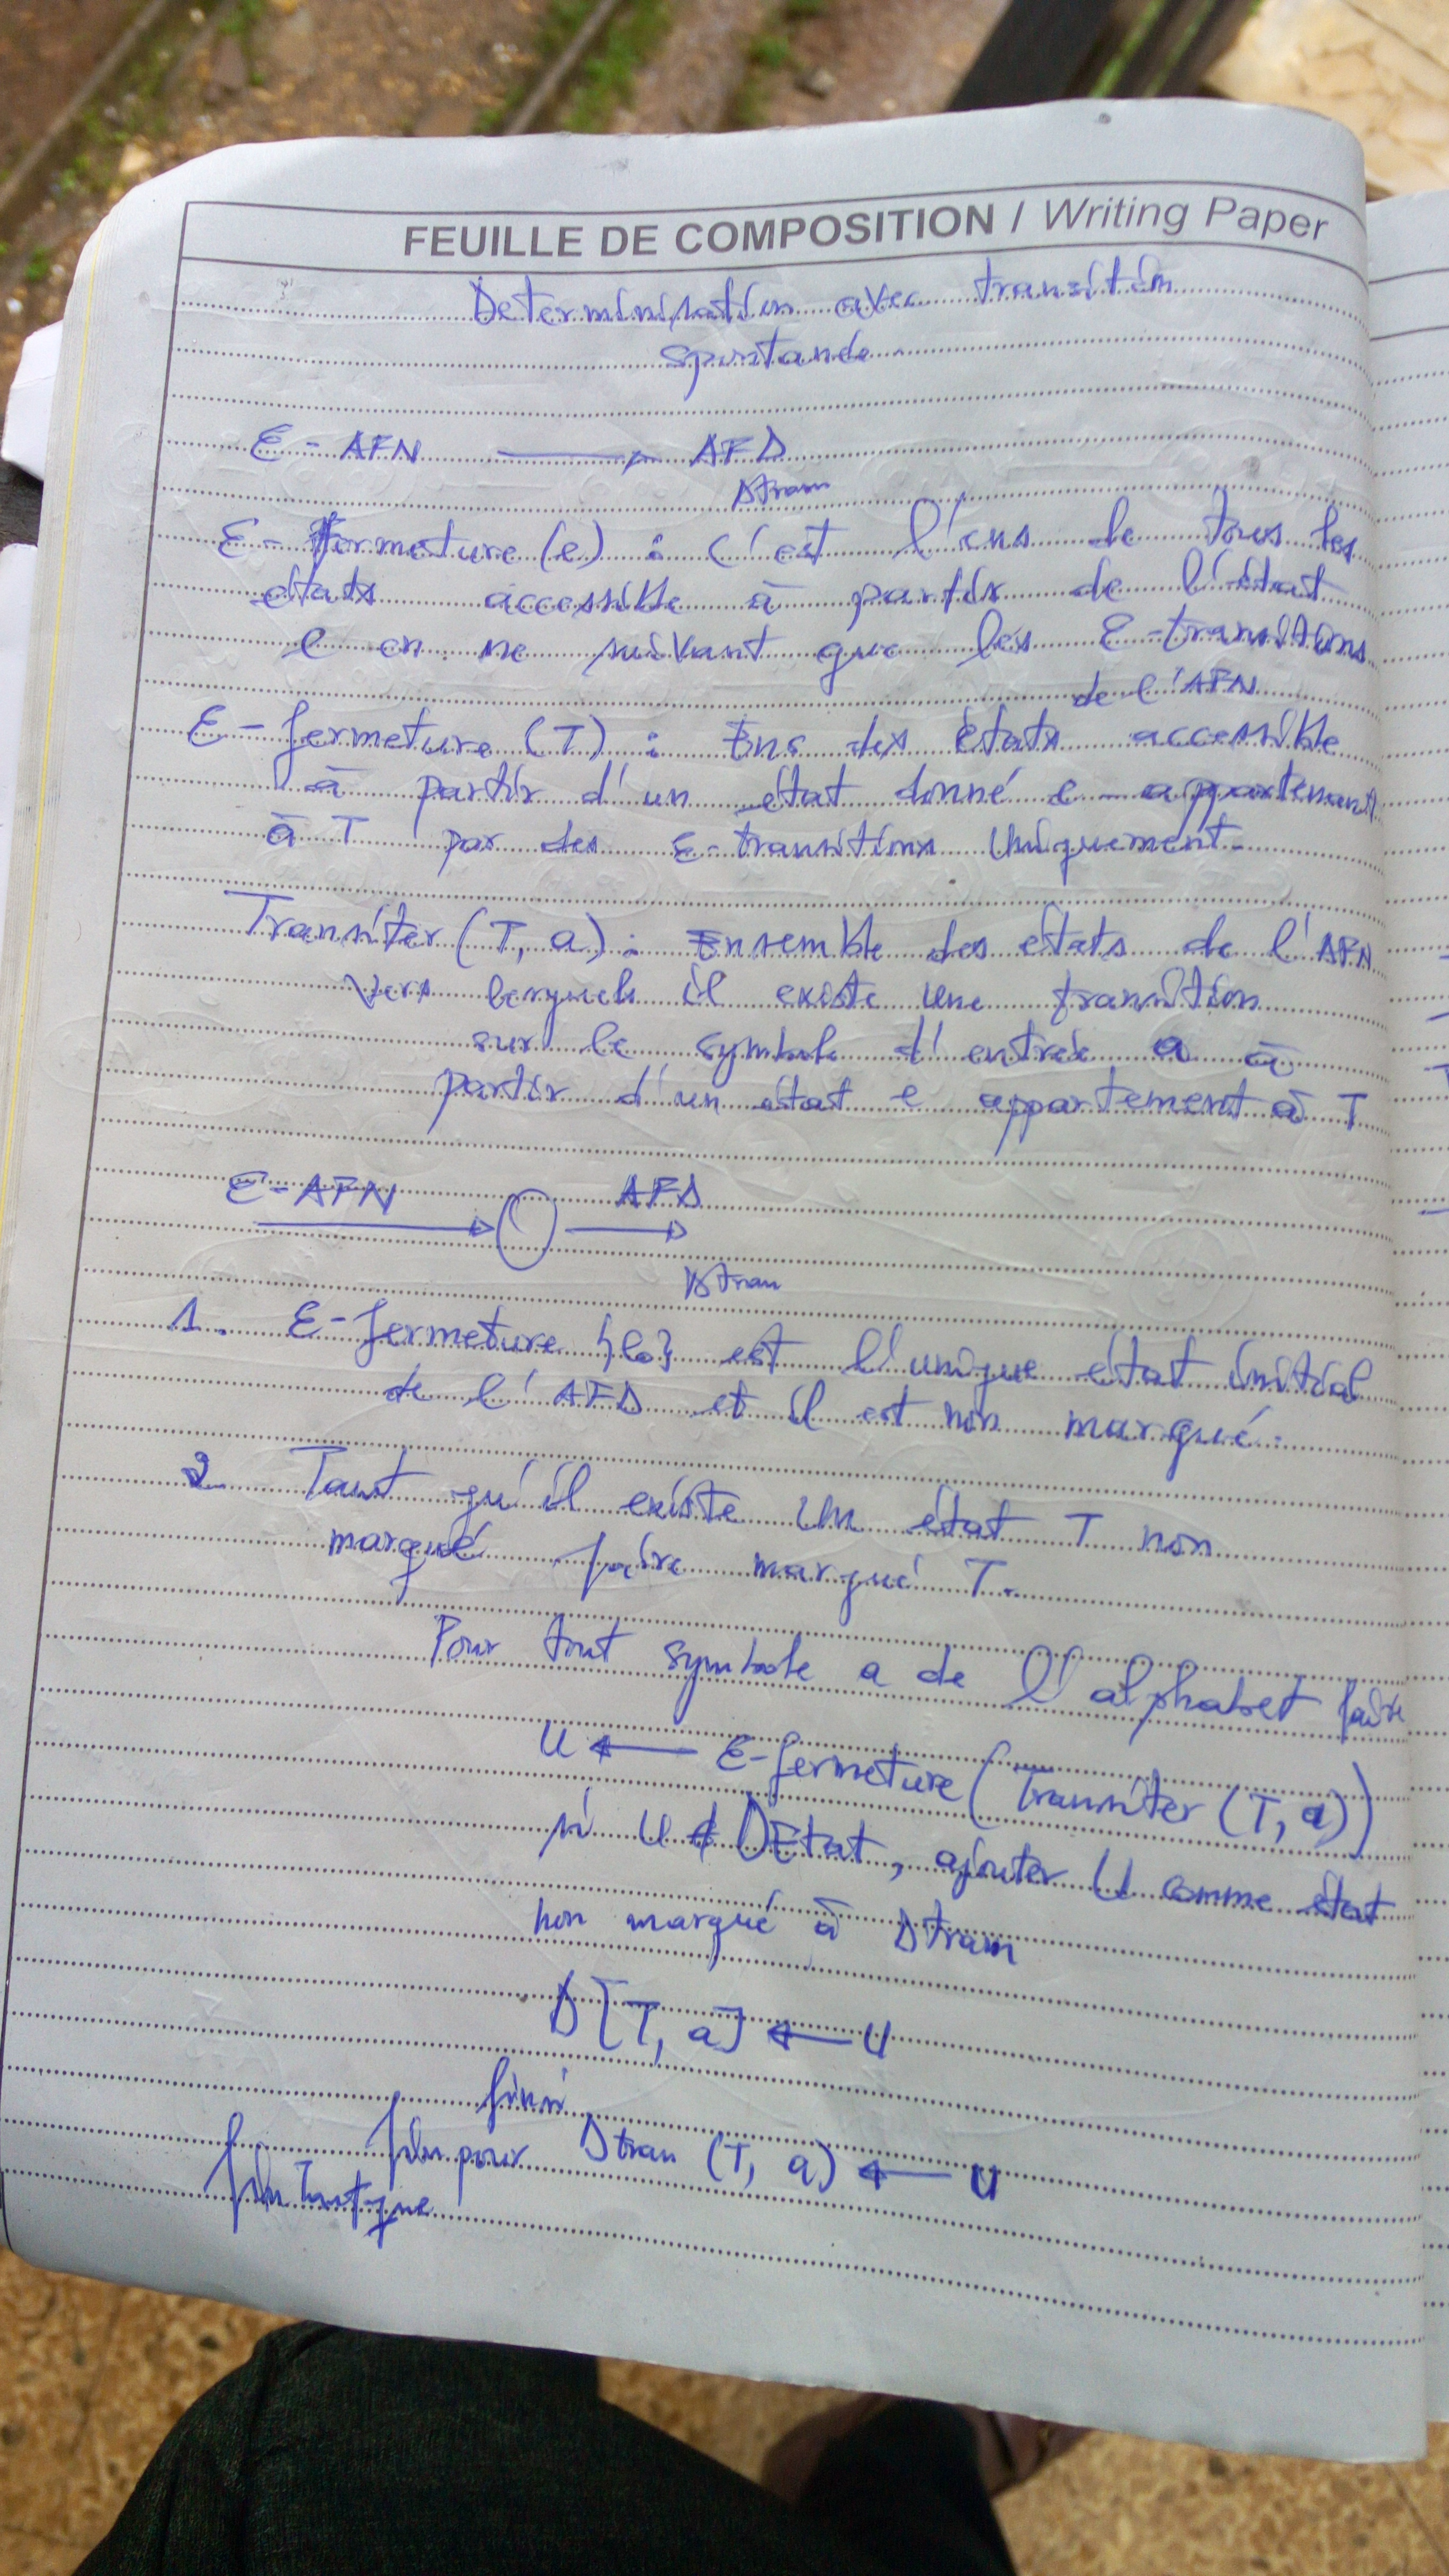 FEUILLE DE COMPOSITION / Writing Paper
Determinisation avec transition
spontanée
Ɛ-AFN → AFD
Dtran
Ɛ-fermeture (e) : c'est l'ens de tous les
états accessible à partir de l'état
e en ne suivant que les Ɛ-transitions
de l'AFN
Ɛ-fermeture (T) : Ens des états accessible
à partir d'un état donné e appartenant
à T par des Ɛ-transitions Uniquement.
Transiter (T, a) : Ensemble des états de l'AFN
Vers lesquels il existe une transition
sur le symbole d'entrée a à
partir d'un état e appartement à T
Ɛ-AFN → AFD
Dtran
1. Ɛ-fermeture {e0} est l'unique état initial
de l'AFD et il est non marqué.
2. Tant qu'il existe un état T non
marqué faire marqué T.
Pour tout symbole a de l'alphabet faire
U ← Ɛ-fermeture (Transiter (T, a))
si U ∉ DEtat, ajouter U comme état
non marqué à Dtran
D[T, a] ← U
finsi
fin pour Dtran (T, a) ← U
fin Tantque